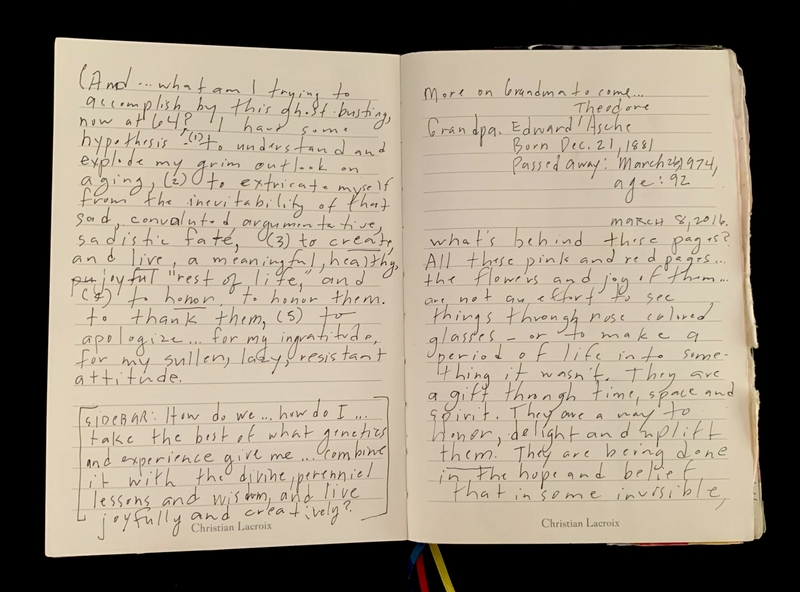 (And... what am I trying to
accomplish by this ghost-busting,
now at 64? I have some
hypothesis: (1) to understand and
explode my grim outlook on
aging, (2) to extricate myself
from the inevitability of that
sad, convaluted, argumentative,
sadistic fate, (3) to create,
and live, a meaningful, healthy,
joyful "rest of life," and
(4) to honor, to honor them.
to thank them, (5) to
apologize... for my ingratitude,
for my sullen, lazy, resistant
attitude.
SIDEBAR: How do we... how do I...
take the best of what genetics
and experience give me... combine
it with the divine, perenniel
lessons and wisdom, and live
joyfully and creatively?
Christian Lacroix
More on Grandma to come...
Theodore
Grandpa. Edward Asche
Born Dec. 21, 1881
Passed away: March 1974,
age: 92
MARCH 8, 2016.
What's behind these pages?
All these pink and red pages...
the flowers and joy of them...
are not an effort to see
things through rose colored
glasses - or to make a
period of life into some-
thing it wasn't. They are
a gift through time, space and
spirit. They are a way to
honor, delight and uplift
them. They are being done
in the hope and belief
that in some invisible,
Christian Lacroix